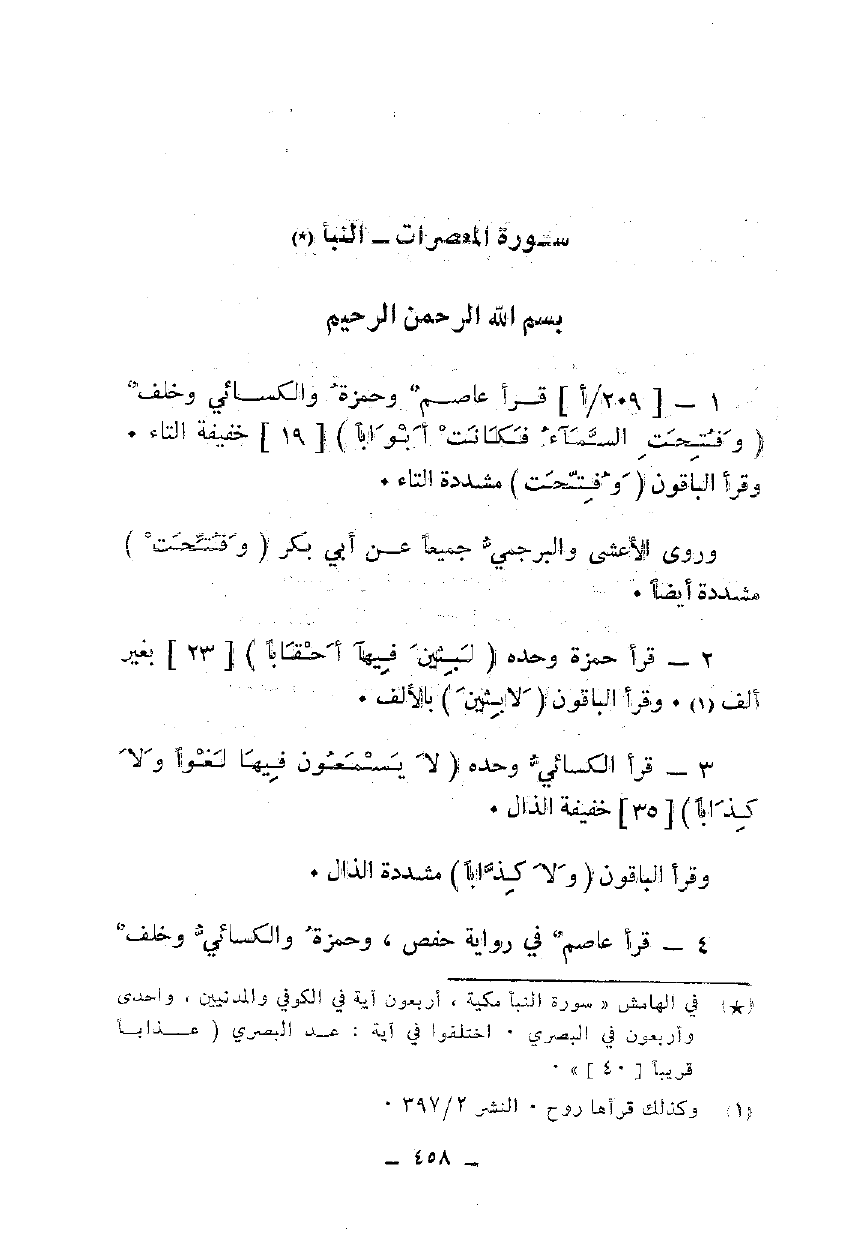 سورة المعصرات – النبأ (★)
بسم الله الرحمن الرحيم
١ – [ ٢٠٩/أ ] قرأ عاصمٌ وحمزةُ والكسائي وخلفٌ
( وَفُتِحَتِ السَّمَآءُ فَكَانَتْ أَبْوَاباً ) [ ١٩ ] خفيفة التاء ٠
وقرأ الباقون ( وَفُتِّحَت ) مشددة التاء ٠
وروى الأعشى والبرجميُّ جميعاً عن أبي بكر ( وَفُتِّحَتْ )
مشددة أيضاً ٠
٢ – قرأ حمزة وحده ( لَبِثِينَ فِيهَآ أَحْقَاباً ) [ ٢٣ ] بغير
ألف (١) ٠ وقرأ الباقون ( لَابِثِينَ ) بالألف ٠
٣ – قرأ الكسائيُّ وحده ( لاَ يَسْمَعُون فِيهَا لَغْواً وَلاَ
كِذَاباً ) [ ٣٥ ] خفيفة الذال ٠
وقرأ الباقون ( وَلاَ كِذَّاباً ) مشددة الذال ٠
٤ – قرأ عاصمٌ في رواية حفص ، وحمزةُ والكسائيُّ وخلفٌ
(★) في الهامش « سورة النبأ مكية ، أربعون آية في الكوفي والمدنيين ، واحدى
وأربعون في البصري ٠ اختلفوا في آية : عد البصري ( عذاباً
قريباً [ ٤٠ ] » ٠
(١) وكذلك قرأها روح ٠ النشر ٣٩٧/٢ ٠
– ٤٥٨ –